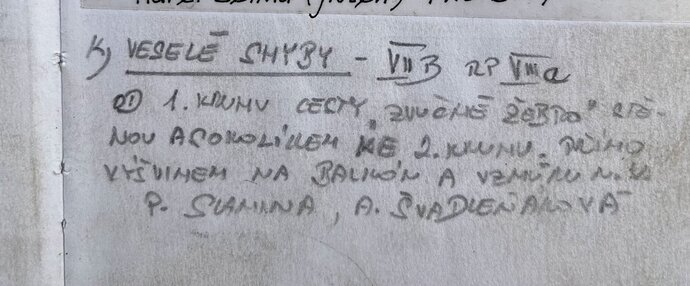 K) VESELÉ SHYBY - VIIB RP VIIIa
OD 1. KRUHU CESTY „ZVUČNÉ ŽEBRO" STĚ-
NOU A SOKOLÍKEM KE 2. KRUHU. PŘÍMO
VÝŠVIHEM NA BALKÓN A VZHŮRU N.
P. SLANINA, A. ŠVADLEŇÁKOVÁ